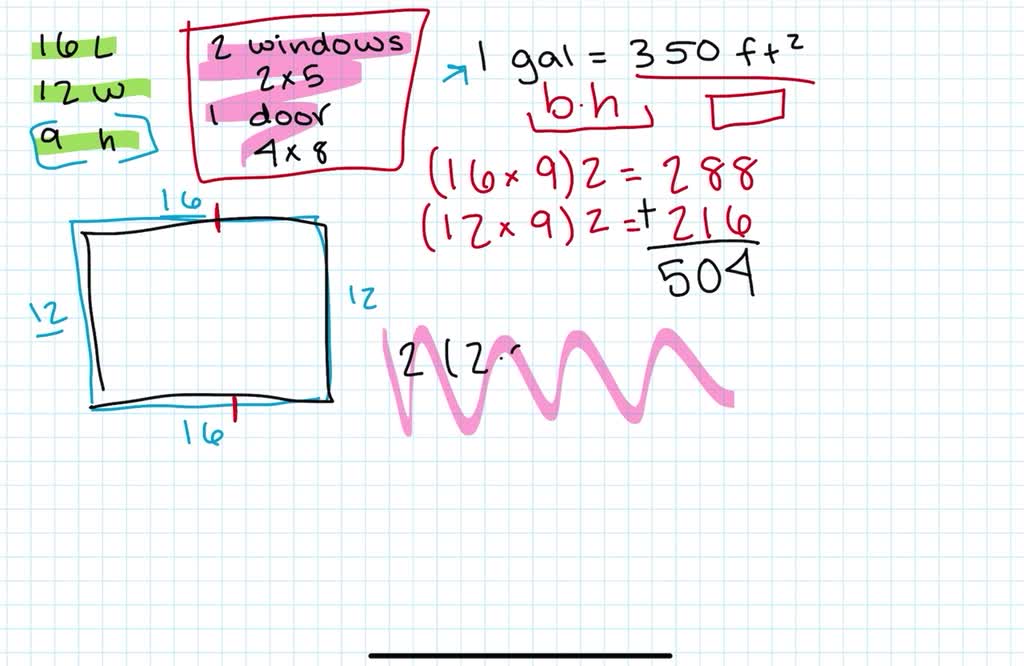 16 L
12 w
[9 h]
2 windows
2 x 5
1 door
4 x 8
1 gal = 350 ft²
b·h
(16 x 9) 2 = 288
(12 x 9) 2 = + 216
504
16
12
12
16
2 (2 ·